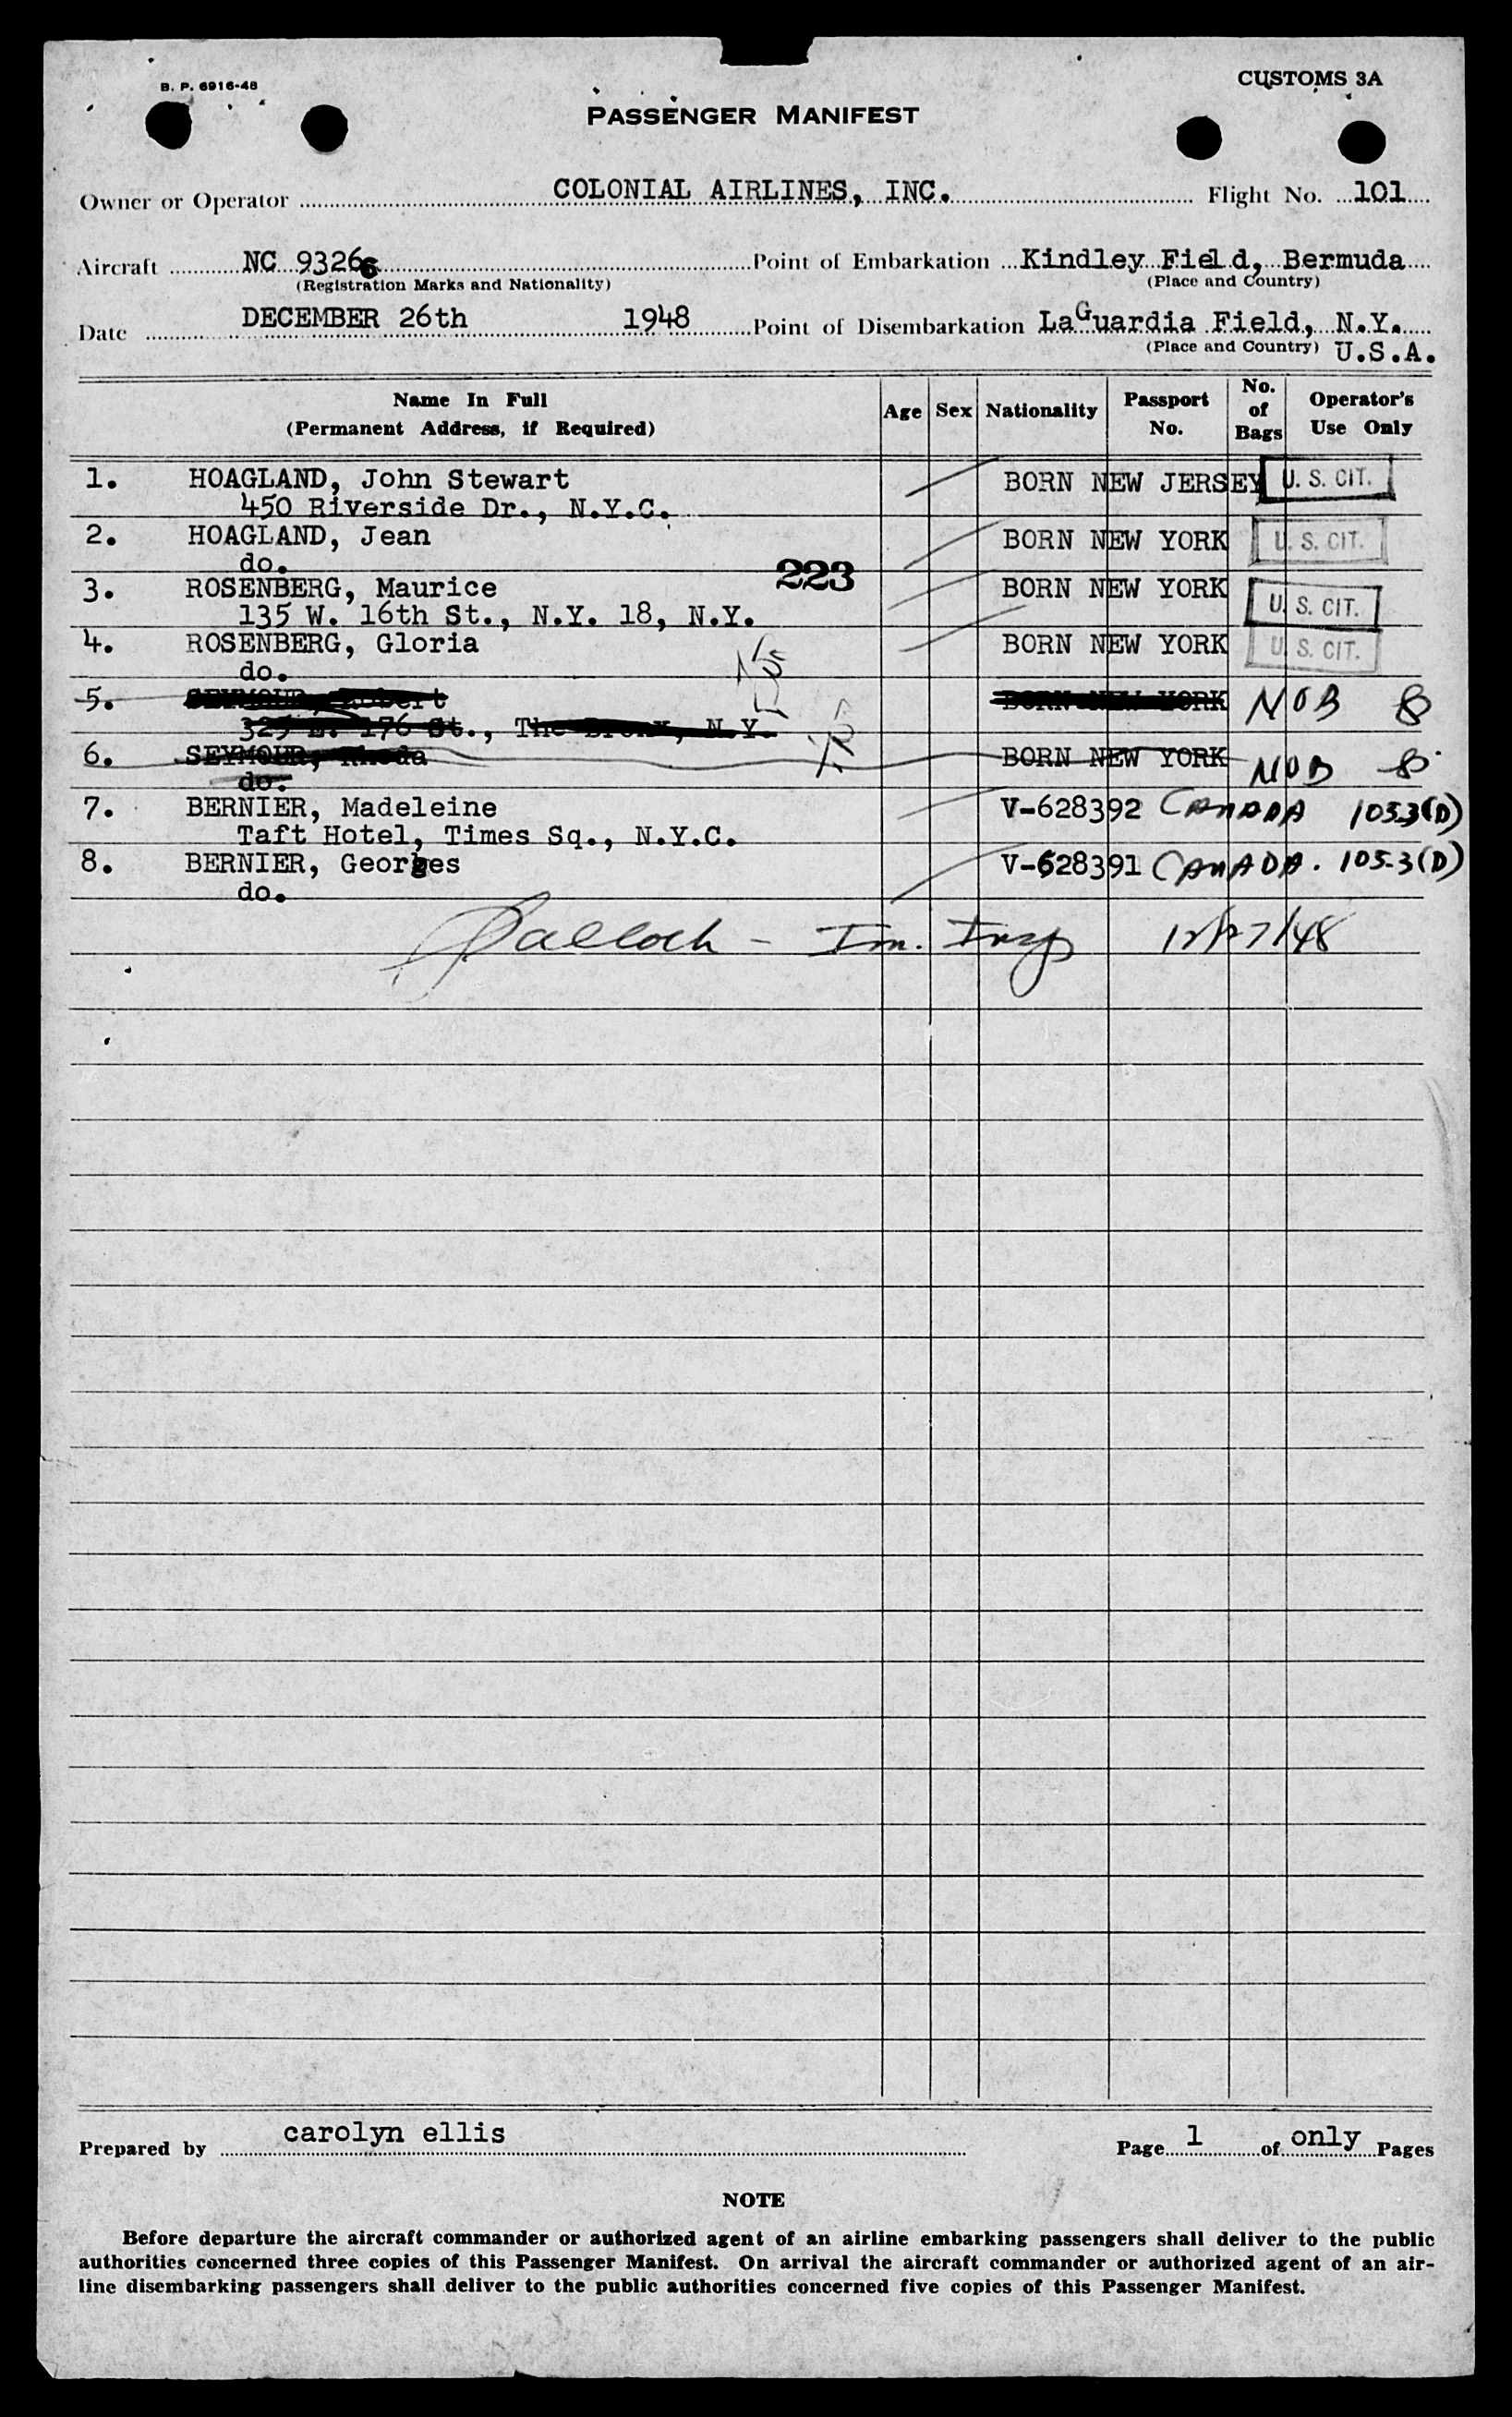 B. P. 6916-48
CUSTOMS 3A
PASSENGER MANIFEST
Owner or Operator COLONIAL AIRLINES, INC. Flight No. 101
Aircraft NC 93266 Point of Embarkation Kindley Field, Bermuda
(Registration Marks and Nationality) (Place and Country)
Date DECEMBER 26th 1948 Point of Disembarkation LaGuardia Field, N.Y.
(Place and Country) U.S.A.
Name In Full (Permanent Address, if Required) Age Sex Nationality Passport No. No. of Bags Operator's Use Only
1. HOAGLAND, John Stewart BORN NEW JERSEY U. S. CIT.
450 Riverside Dr., N.Y.C.
2. HOAGLAND, Jean BORN NEW YORK U. S. CIT.
do.
223
3. ROSENBERG, Maurice BORN NEW YORK U. S. CIT.
135 W. 16th St., N.Y. 18, N.Y.
4. ROSENBERG, Gloria BORN NEW YORK U. S. CIT.
do.
5. SEYMOUR, Robert BORN NEW YORK NOB
325 E. 176 St., The Bronx, N.Y.
6. SEYMOUR, Rhoda BORN NEW YORK NOB
do.
7. BERNIER, Madeleine V-628392 CANADA 105.3(D)
Taft Hotel, Times Sq., N.Y.C.
8. BERNIER, Georges V-628391 CANADA. 105-3(D)
do.
Im. Insp 12/27/48
Prepared by carolyn ellis Page 1 of only Pages
NOTE
Before departure the aircraft commander or authorized agent of an airline embarking passengers shall deliver to the public
authorities concerned three copies of this Passenger Manifest. On arrival the aircraft commander or authorized agent of an air-
line disembarking passengers shall deliver to the public authorities concerned five copies of this Passenger Manifest.